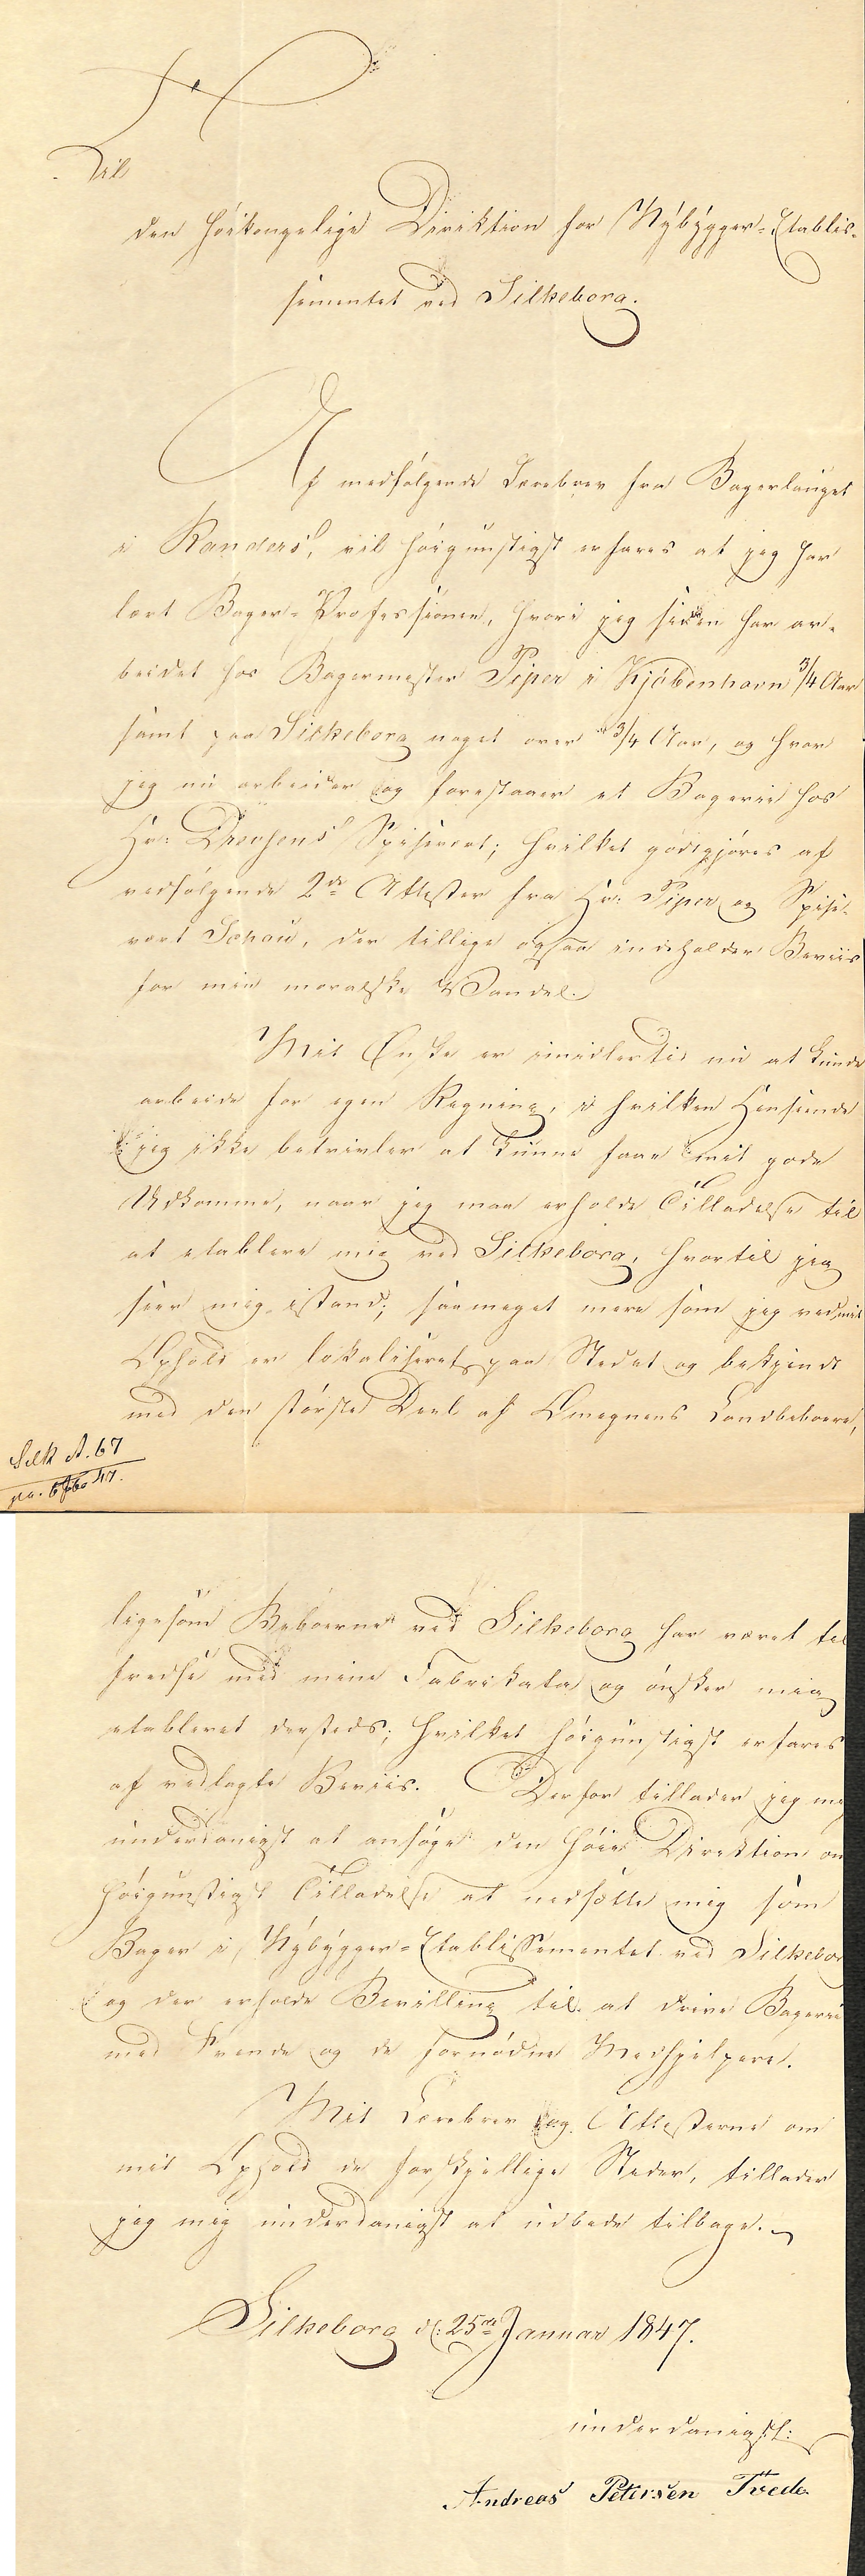 Til
den høikongelige Direktion for Nÿbÿgger-Etablis-
sementet ved Silkeborg.
Af medfølgende Lærebrev fra Bagerlauget
i Randers, vil høigunstigst erfares at jeg har
lært Bager-Professionen, hvori jeg siden har ar-
beidet hos Bagermester Piper i Kjøbenhavn 3/4 Aar
samt paa Silkeborg noget over 3/4 Aar, og hvor
jeg nu arbeider og forestaaer et Bagerie hos
Hr: Drewsens Spisevert; hvilket godtgjøres af
vedfølgende 2de Attester fra Hr: Piper og Spise-
vert Schou, der tillige ogsaa indeholder Beviis
for min moralske Vandel.
Mit Ønske er imidlertid nu at kunde
arbeide for egen Regning, i hvilken Henseende
jeg ikke betvivler at kunne faae mit gode
Udkomme, naar jeg maa erholde Tilladelse til
at etablere mig ved Silkeborg, hvortil jeg
seer mig istand; saameget mere som jeg ved mit
Ophold er lokaliseret paa Stedet og bekjendt
med den største Deel af Omegnens Landbeboere,
Silk A. 67
pr. 6 Febr 47.
ligesom Beboerne ved Silkeborg har været til
fredse med mine Fabrikata og ønsker mig
etableret dersteds; hvilket høigunstigst erfares
af vedlagte Beviis. Derfor tillader jeg mig
underdanigst at ansøge den høie Direktion om
høigunstigst Tilladelse at nedsætte mig som
Bager i Nÿbÿgger-Etablissementet ved Silkebor
og der erholde Bevilling til at drive Bagerie
med Svende og de fornødne Medhjelpere.
Mit Lærebrev og Attesterne om
mit Ophold de forskjellige Steder, tillader
jeg mig underdanigst at udbede tilbage.
Silkeborg d: 25de Januar 1847.
underdanigst:
Andreas Petersen Tvede